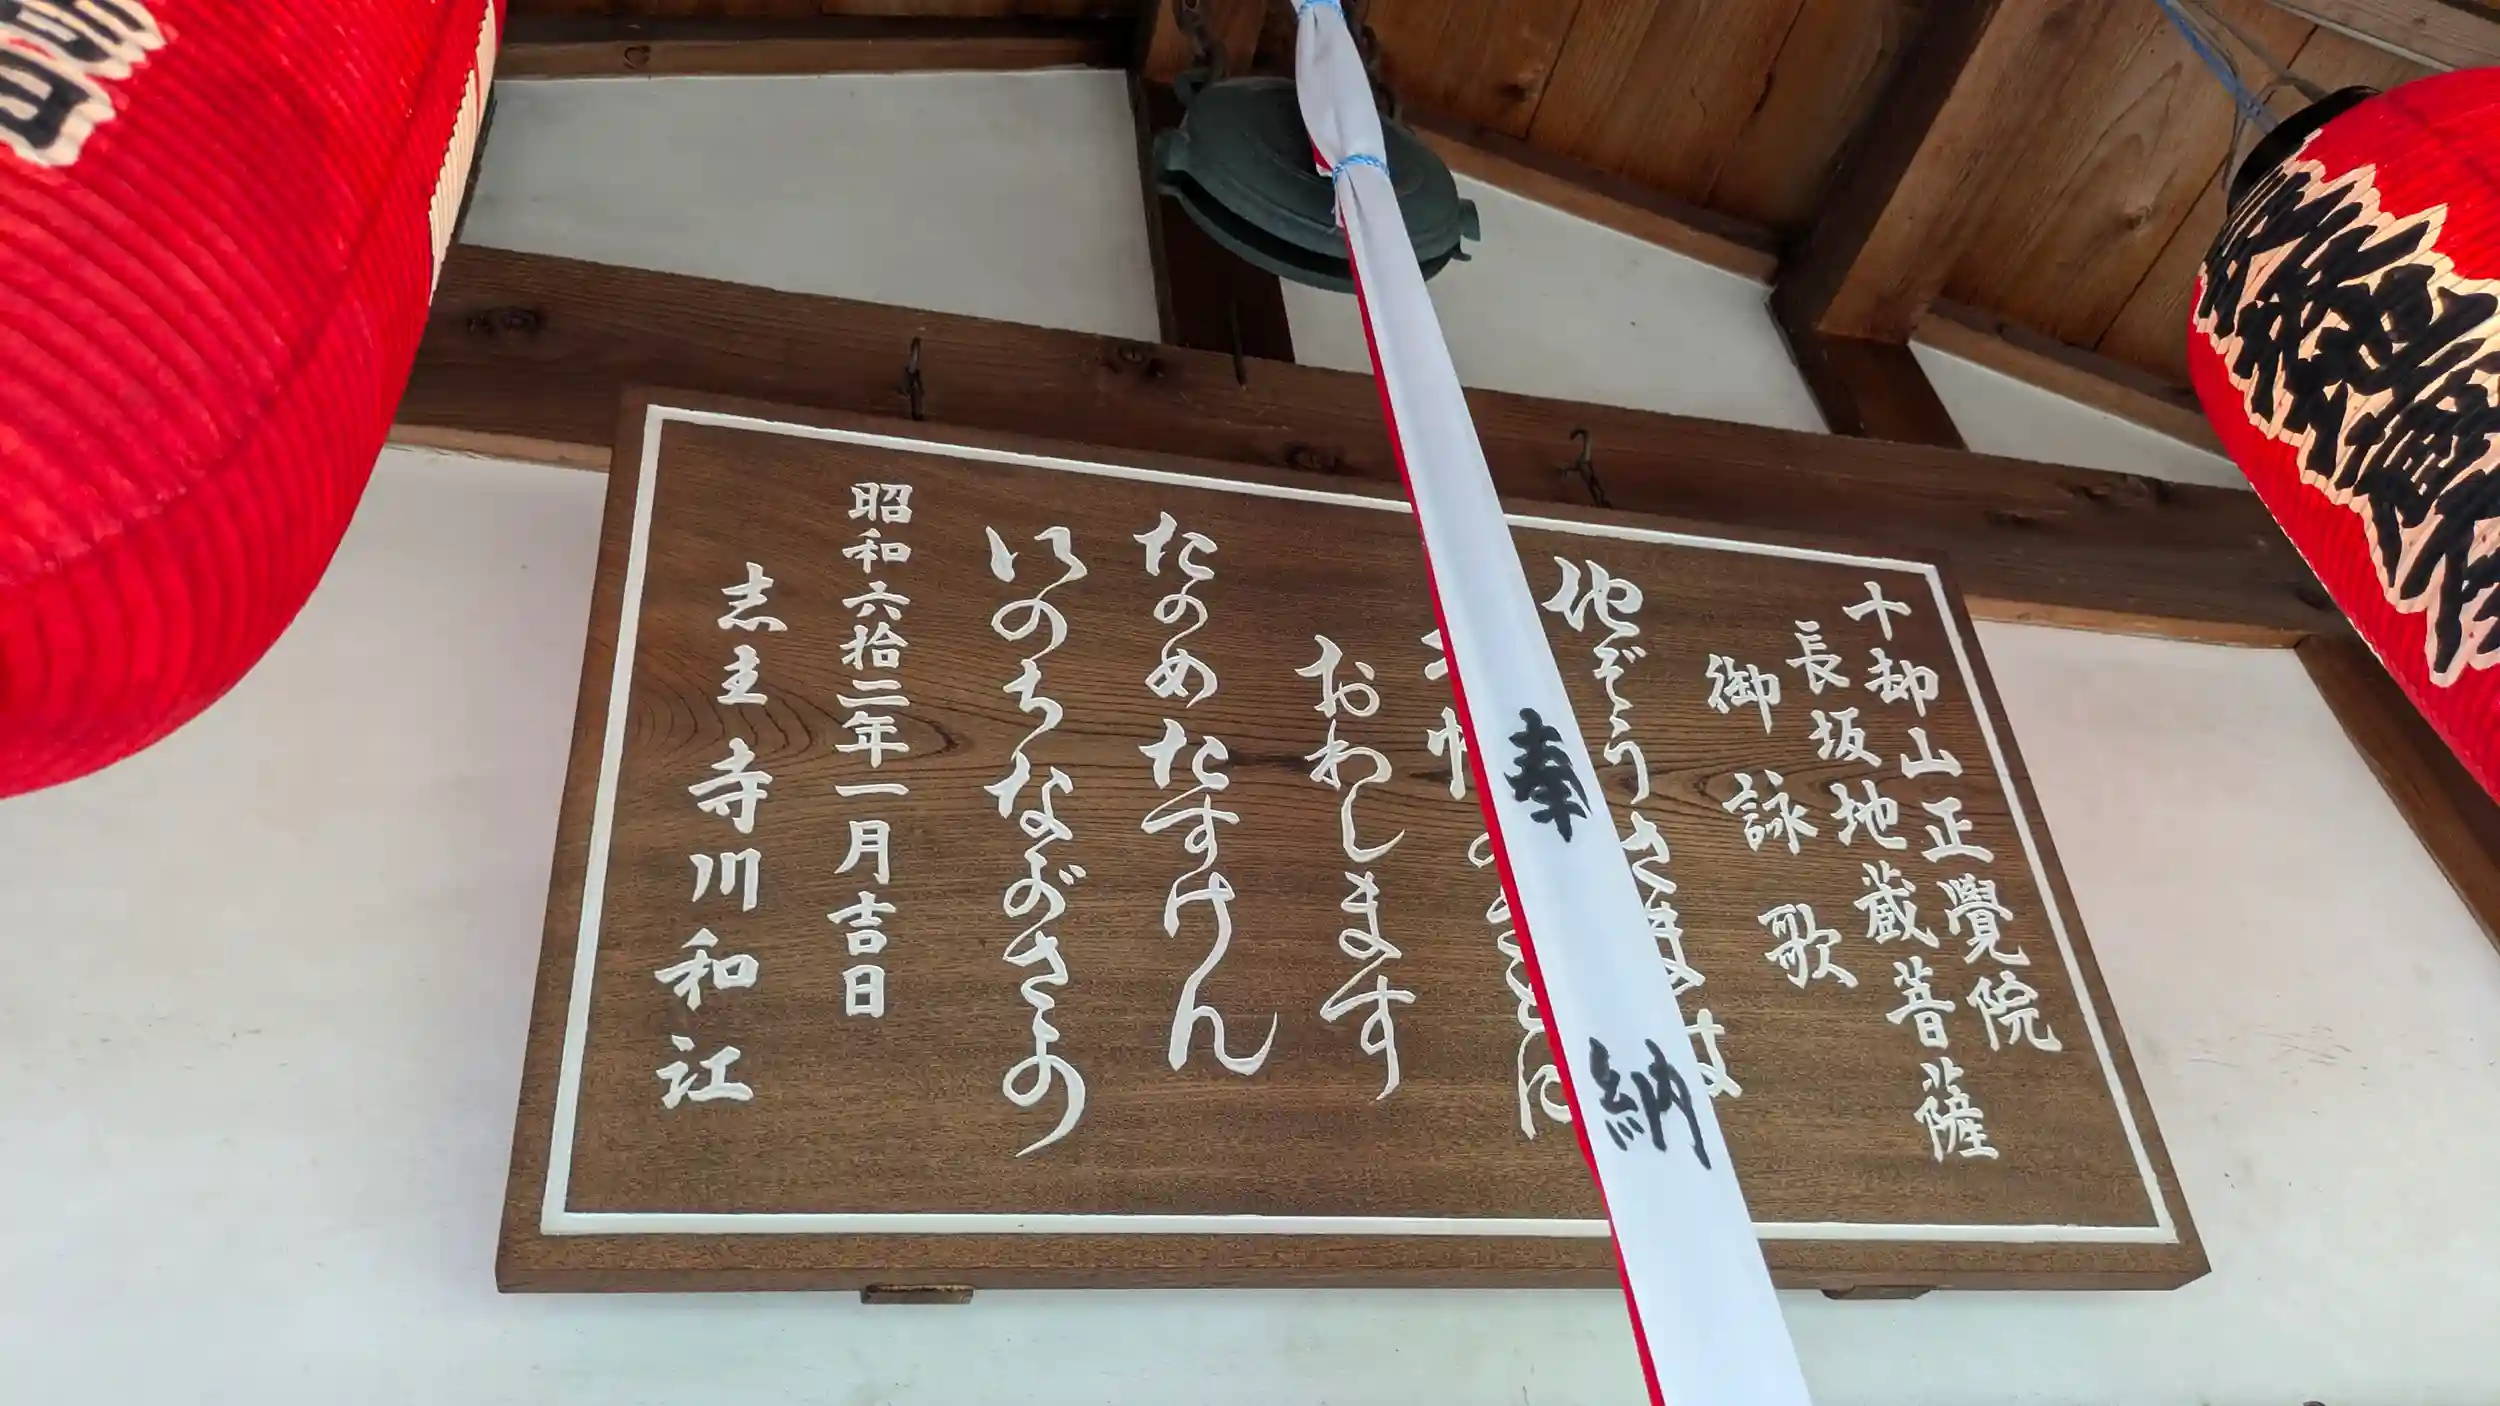 十却山正覺院
長坂地蔵菩薩
御詠歌
地ぞうさまは
おわします
たのめたすけん
いのちながさこの
昭和六拾二年一月吉日
志主寺川和江
奉納